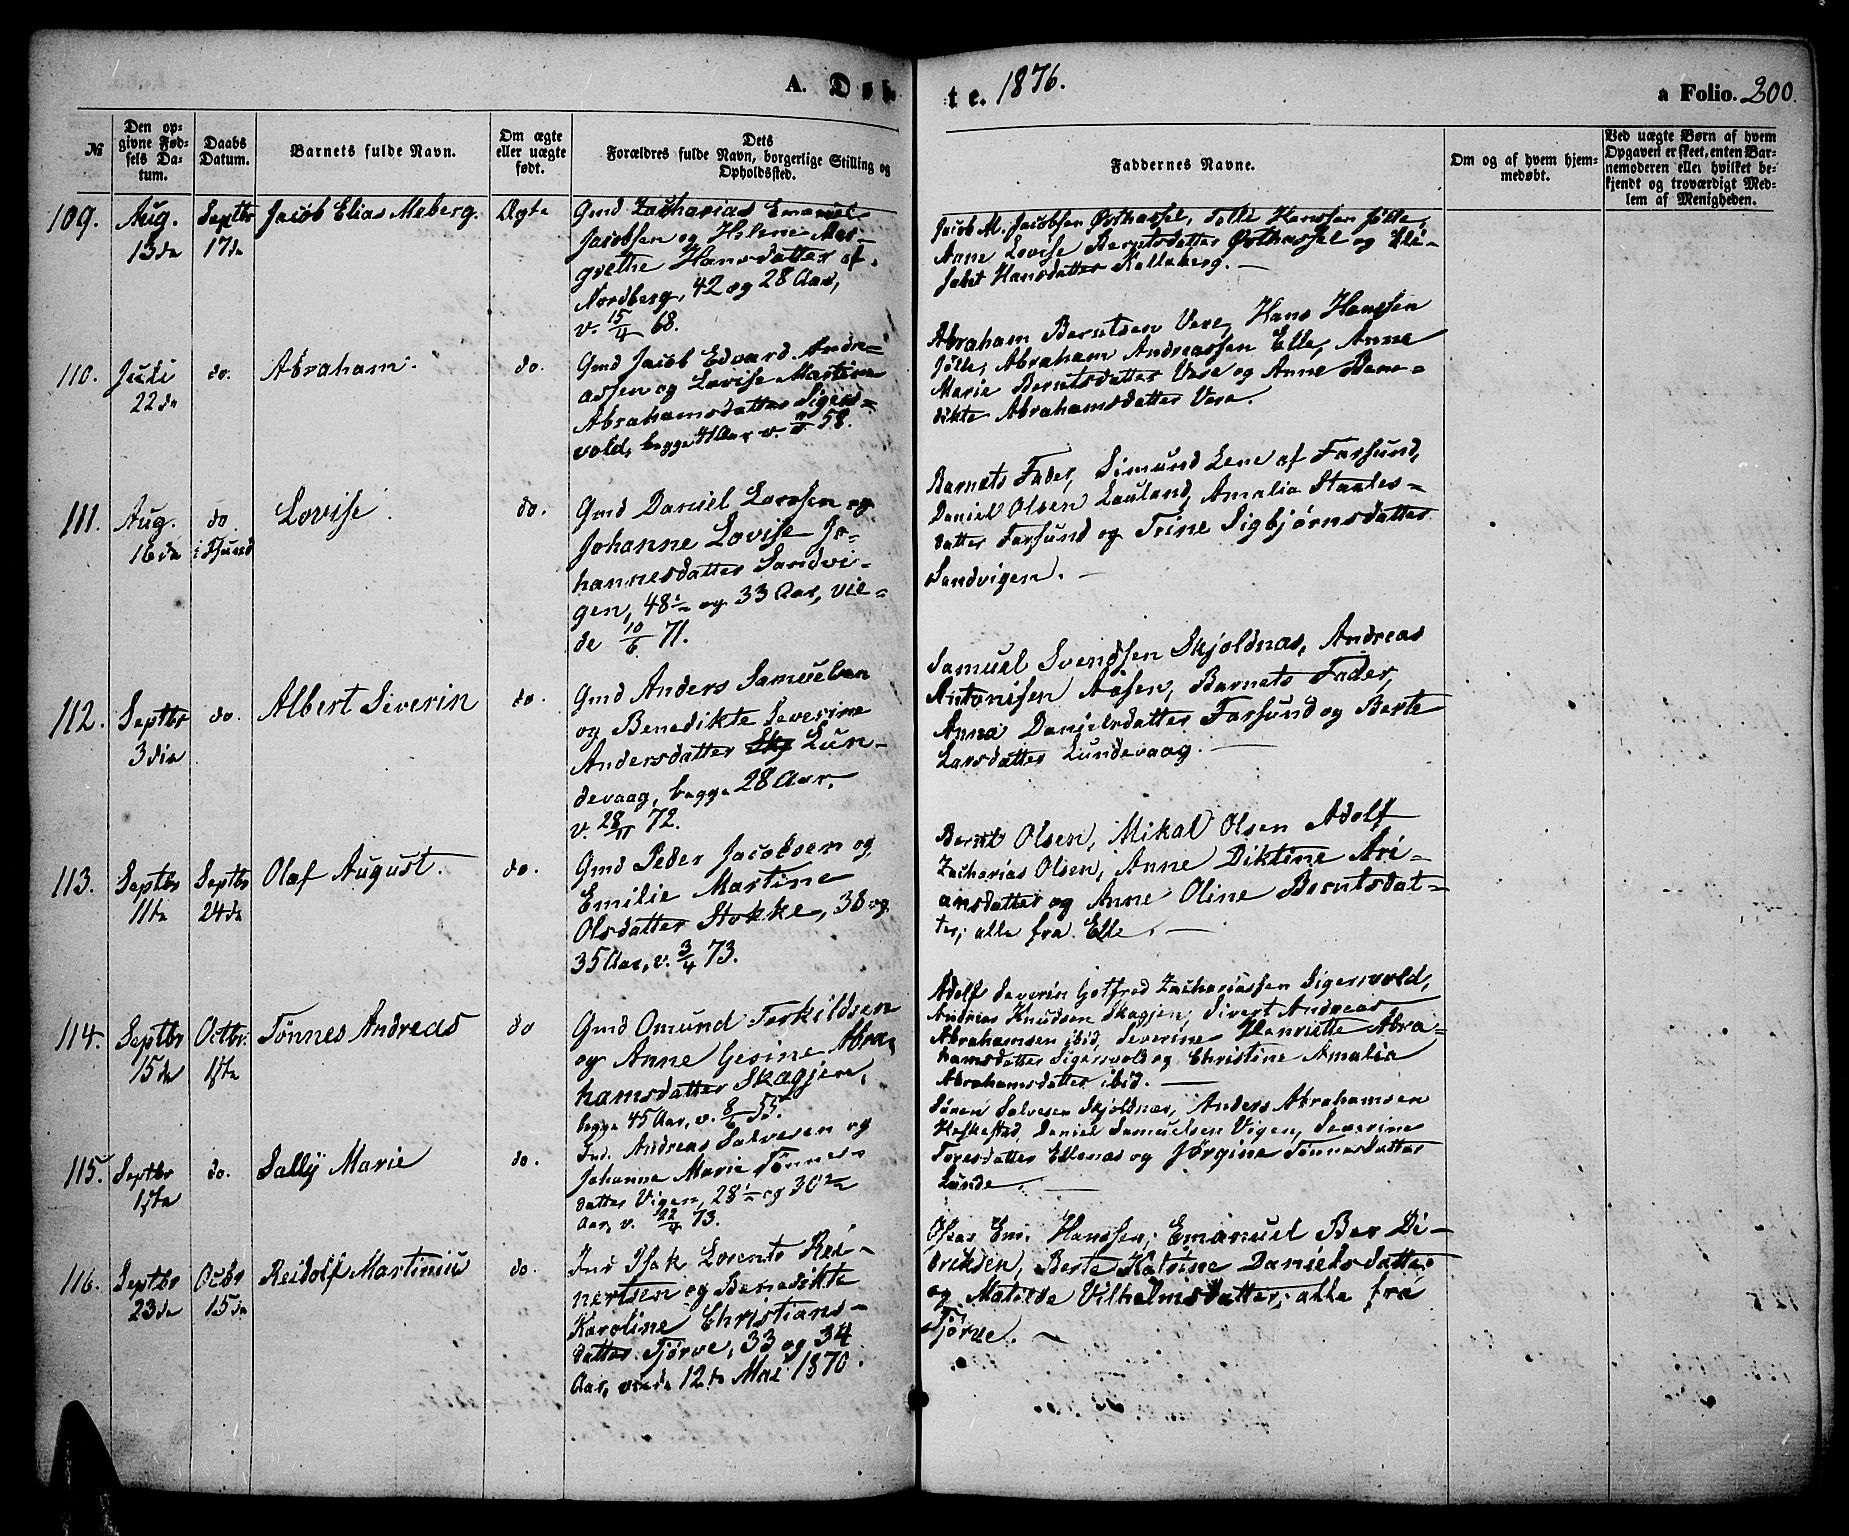 A. Døbte. 1876.
a Folio. 200.
№
Den opgivne Fødsels Datum.
Daabs Datum.
Barnets fulde Navn.
Om ægte eller uægte født.
Dets Forældres fulde Navn, borgerlige Stilling og Opholdssted.
Faddernes Navne.
Om og af hvem hjemmedøbt.
Ved uægte Børn af hvem Opgaven er skeet, enten Barnemoderen eller hvilket bekjendt og troværdigt Medlem af Menigheden.
109. Aug. 13da
Septbr 17da
Jacob Elias Meberg.
Ægte
Gmd Zacharias Emanuel
Jacobsen og Helene Mar-
grethe Hansdatter af
Nordberg, 42 og 28 Aar,
v. 15/4 68.
Jacob M. Jacobsen Østhassel, Tolle Hanssen Jølle,
Anne Lovise Berntsdatter Østhassel og Eli-
sabet Hansdatter Kalleberg. —
110. Juli 22da
do.
Abraham.
do.
Gmd Jacob Edvard Andre-
assen og Lovise Martine
Abrahamsdatter Sigers-
vold, begge 41 Aar v. 58.
Abraham Berntsen Vere, Hans Hanssen
Jølle, Abraham Andreassen Elle, Anne
Marie Berntsdatter Vere og Anne Bene-
dikte Abrahamsdatter Vere.
111. Aug. 16da
do. i Fsund
Lovise.
do.
Gmd Daniel Larsen og
Johanne Lovise Jo-
hannesdatter Sandvi-
gen, 48 og 33 Aar, vie-
de 10/6 71.
Barnets Fader, Simund Lene af Farsund,
Daniel Olsen Lauland, Amalia Staales-
datter Farsund og Trine Sigbjørnsdatter
Sandvigen. —
112. Septbr 3die
do.
Albert Severin
do.
Gmd Anders Samuelsen
og Benedikte Severine
Andersdatter Skj Lun-
devaag, begge 28 Aar.
v. 28/11 72.
Samuel Svendsen Skjoldnas, Andreas
Antonisen Aasen, Barnets Fader,
Anna Danielsdatter Farsund og Berte
Larsdatter Lundevaag. —
113. Septbr 11da
Septbr 24da
Olaf August.
do.
Gmd Peder Jacobsen og
Emilie Martine
Olsdatter Stokke, 38 og
35 Aar, v. 3/4 73.
Bernt Olsen, Mikal Olsen Adolf
Zacharias Olsen, Anne Diktine Ari-
ansdatter og Anne Oline Berntsdat-
ter, alle fra Elle. —
114. Septbr 15da
Octbr. 1ste
Tønnes Andreas
do
Gmd Omund Torkildsen
og Anne Gesine Abra-
hamsdatter Skagjen,
begge 45 Aar, v. 8/6 55.
Adolf Severin Gotfred Zachariassen Sigersvold,
Andreas Knudsen Skagjen, Sivert Andreas
Abrahamsen ibid, Severine Henriette Abra-
hamsdatter Sigersvold og Christine Amalia
Abrahamsdatter ibid. —
115. Septbr 1ste
do.
Sally Marie
do.
Ind. Andreas Salvesen og
Johanne Marie Tønnes-
datter Vigen, 28 og 30
Aar, v. 22/4 73.
Søren Salvesen Skjoldnes, Anders Abrahamsen
Heskestad, Daniel Samuelsen Vigen, Severine
Toresdatter Ellenes og Jørgine Tønnesdatter
Lunde. —
116. Septbr 23da
Octbr 15da
Reidolf Martinius
do.
Ind Isak Lorents Rei-
nertsen og Benedikte
Karoline Christians-
datter Tjørve, 33 og 34
Aar, viede 12te Mai 1870.
Osear Em. Hanssen, Emanuel Ber Di-
driksen, Berte Katrine Danielsdatter
og Matilde Vilhelmsdatter, alle fra
Tjørve. —